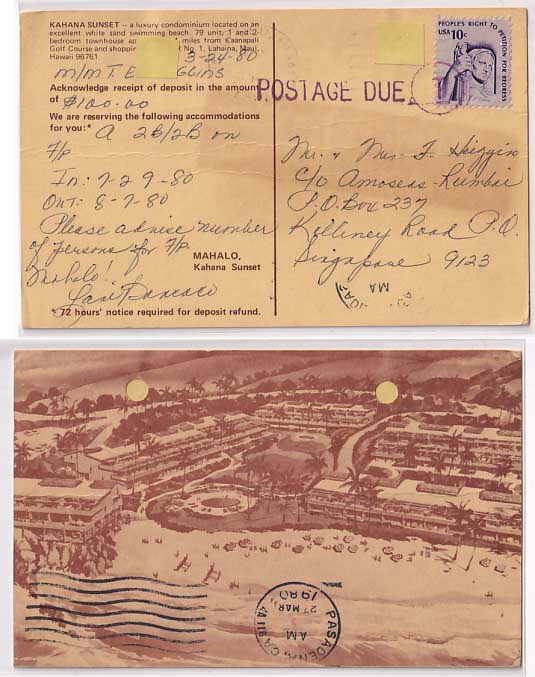 KAHANA SUNSET – a luxury condominium located on an
excellent white sand swimming beach. 79 unit, 1 and 2-
bedroom townhouse ap miles from Kaanapali
Golf Course and shoppin No. 1, Lahaina, Maui,
Hawaii 96761
3-24-80
M/M T. E GGINS
Acknowledge receipt of deposit in the amount
of $100.00
We are reserving the following accommodations
for you:* A 2B/2B on
7/p
In: 7-29-80
Out: 8-7-80
Please advise number
of persons for 7/p.
Mahalo!
MAHALO,
Kahana Sunset
* 72 hours' notice required for deposit refund.
PEOPLE'S RIGHT TO PETITION FOR REDRESS
USA 10c
POSTAGE DUE
Mr. & Mrs. T. Higgins
C/O Amoseas-Rumbai
P.O. Box 237
Killiney Road P.O.
Singapore 9123
MA
PASADENA, CA 911
AM
27 MAR
1980